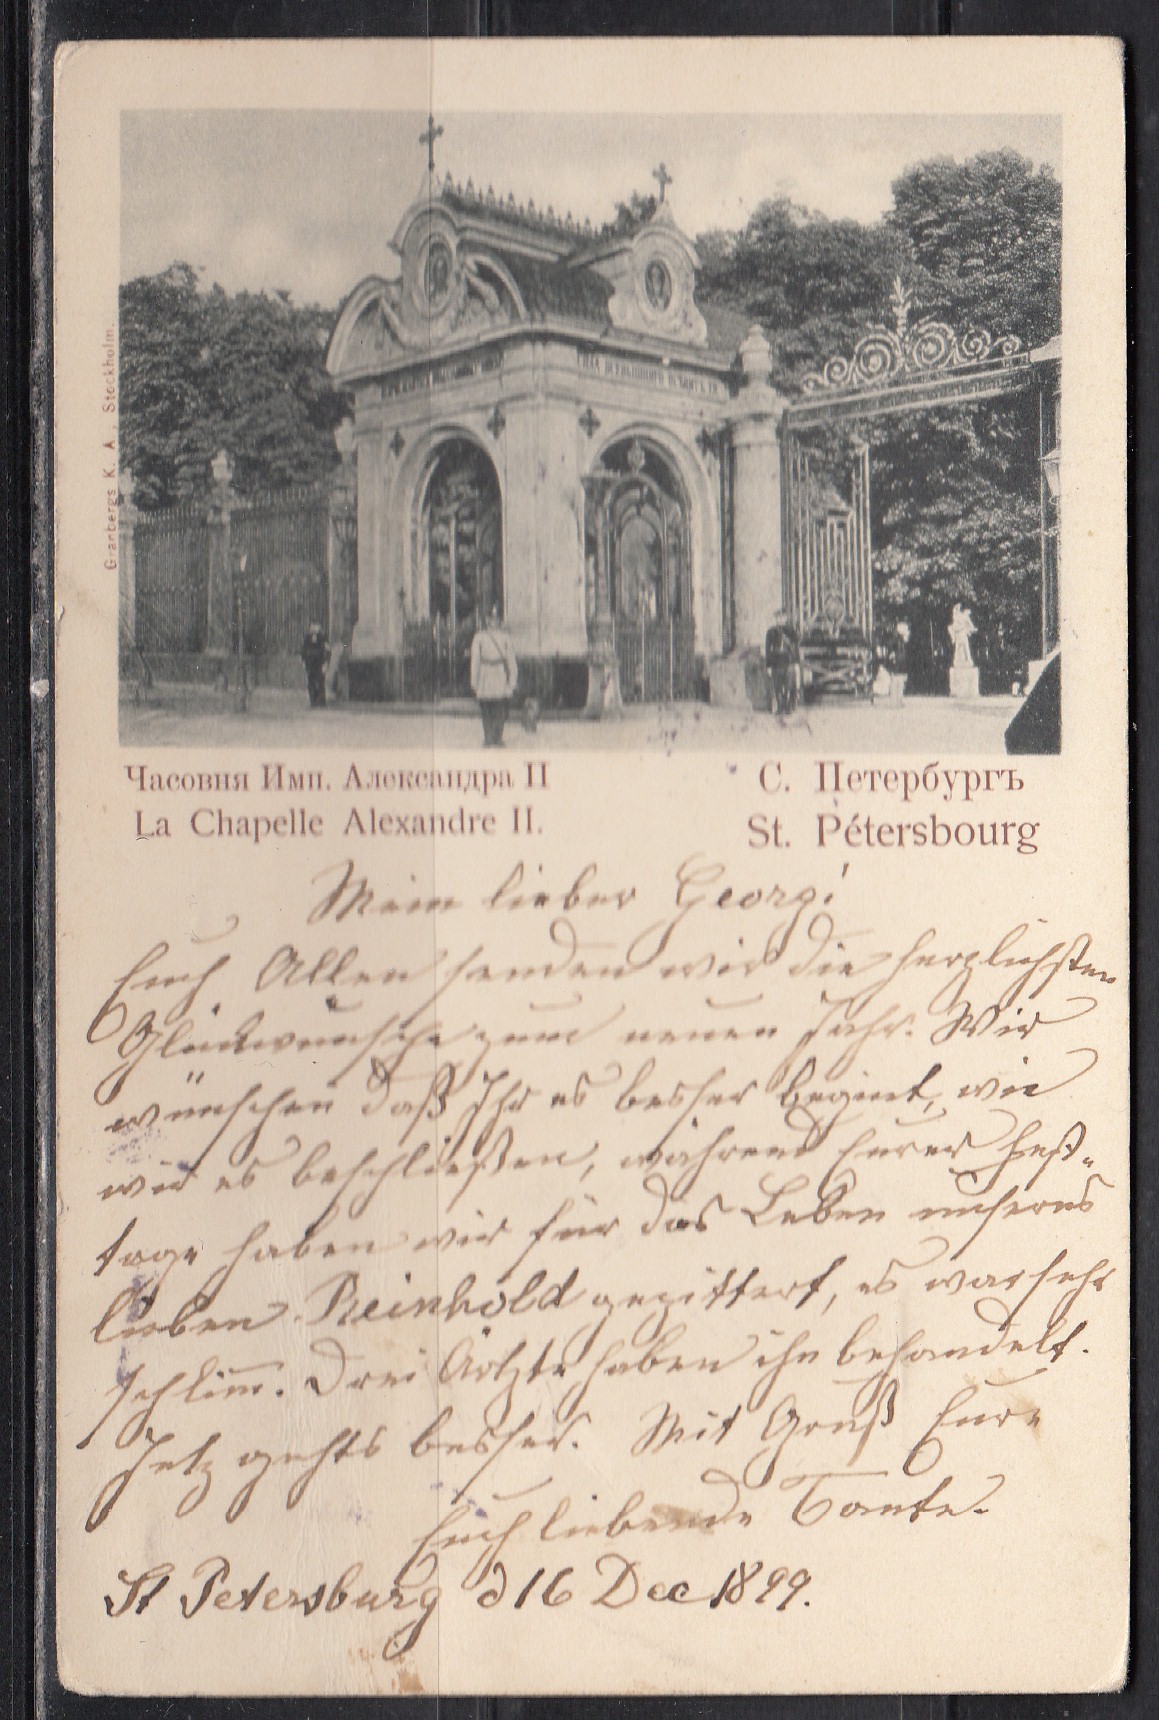 Granbergs K. A., Stockholm.
Часовня Имп. Александра II
La Chapelle Alexandre II.
С. Петербургъ
St. Pétersbourg
Mein lieber Georg!
Euch Allen senden wir die herzlichsten
Glückwünsche zum neuen Jahr. Wir
wünschen daß Ihr es besser begint, wie
wir es beschließen, während Eurer Fest-
tage haben wir für das Leben unseres
lieben Reinhold gezittert, es war sehr
schlim. Drei Ärtzte haben ihn behandelt.
Jetz gehts besser. Mit Gruß Eure
Euch liebende Tante.
St Petersburg d 16 Dec 1899.